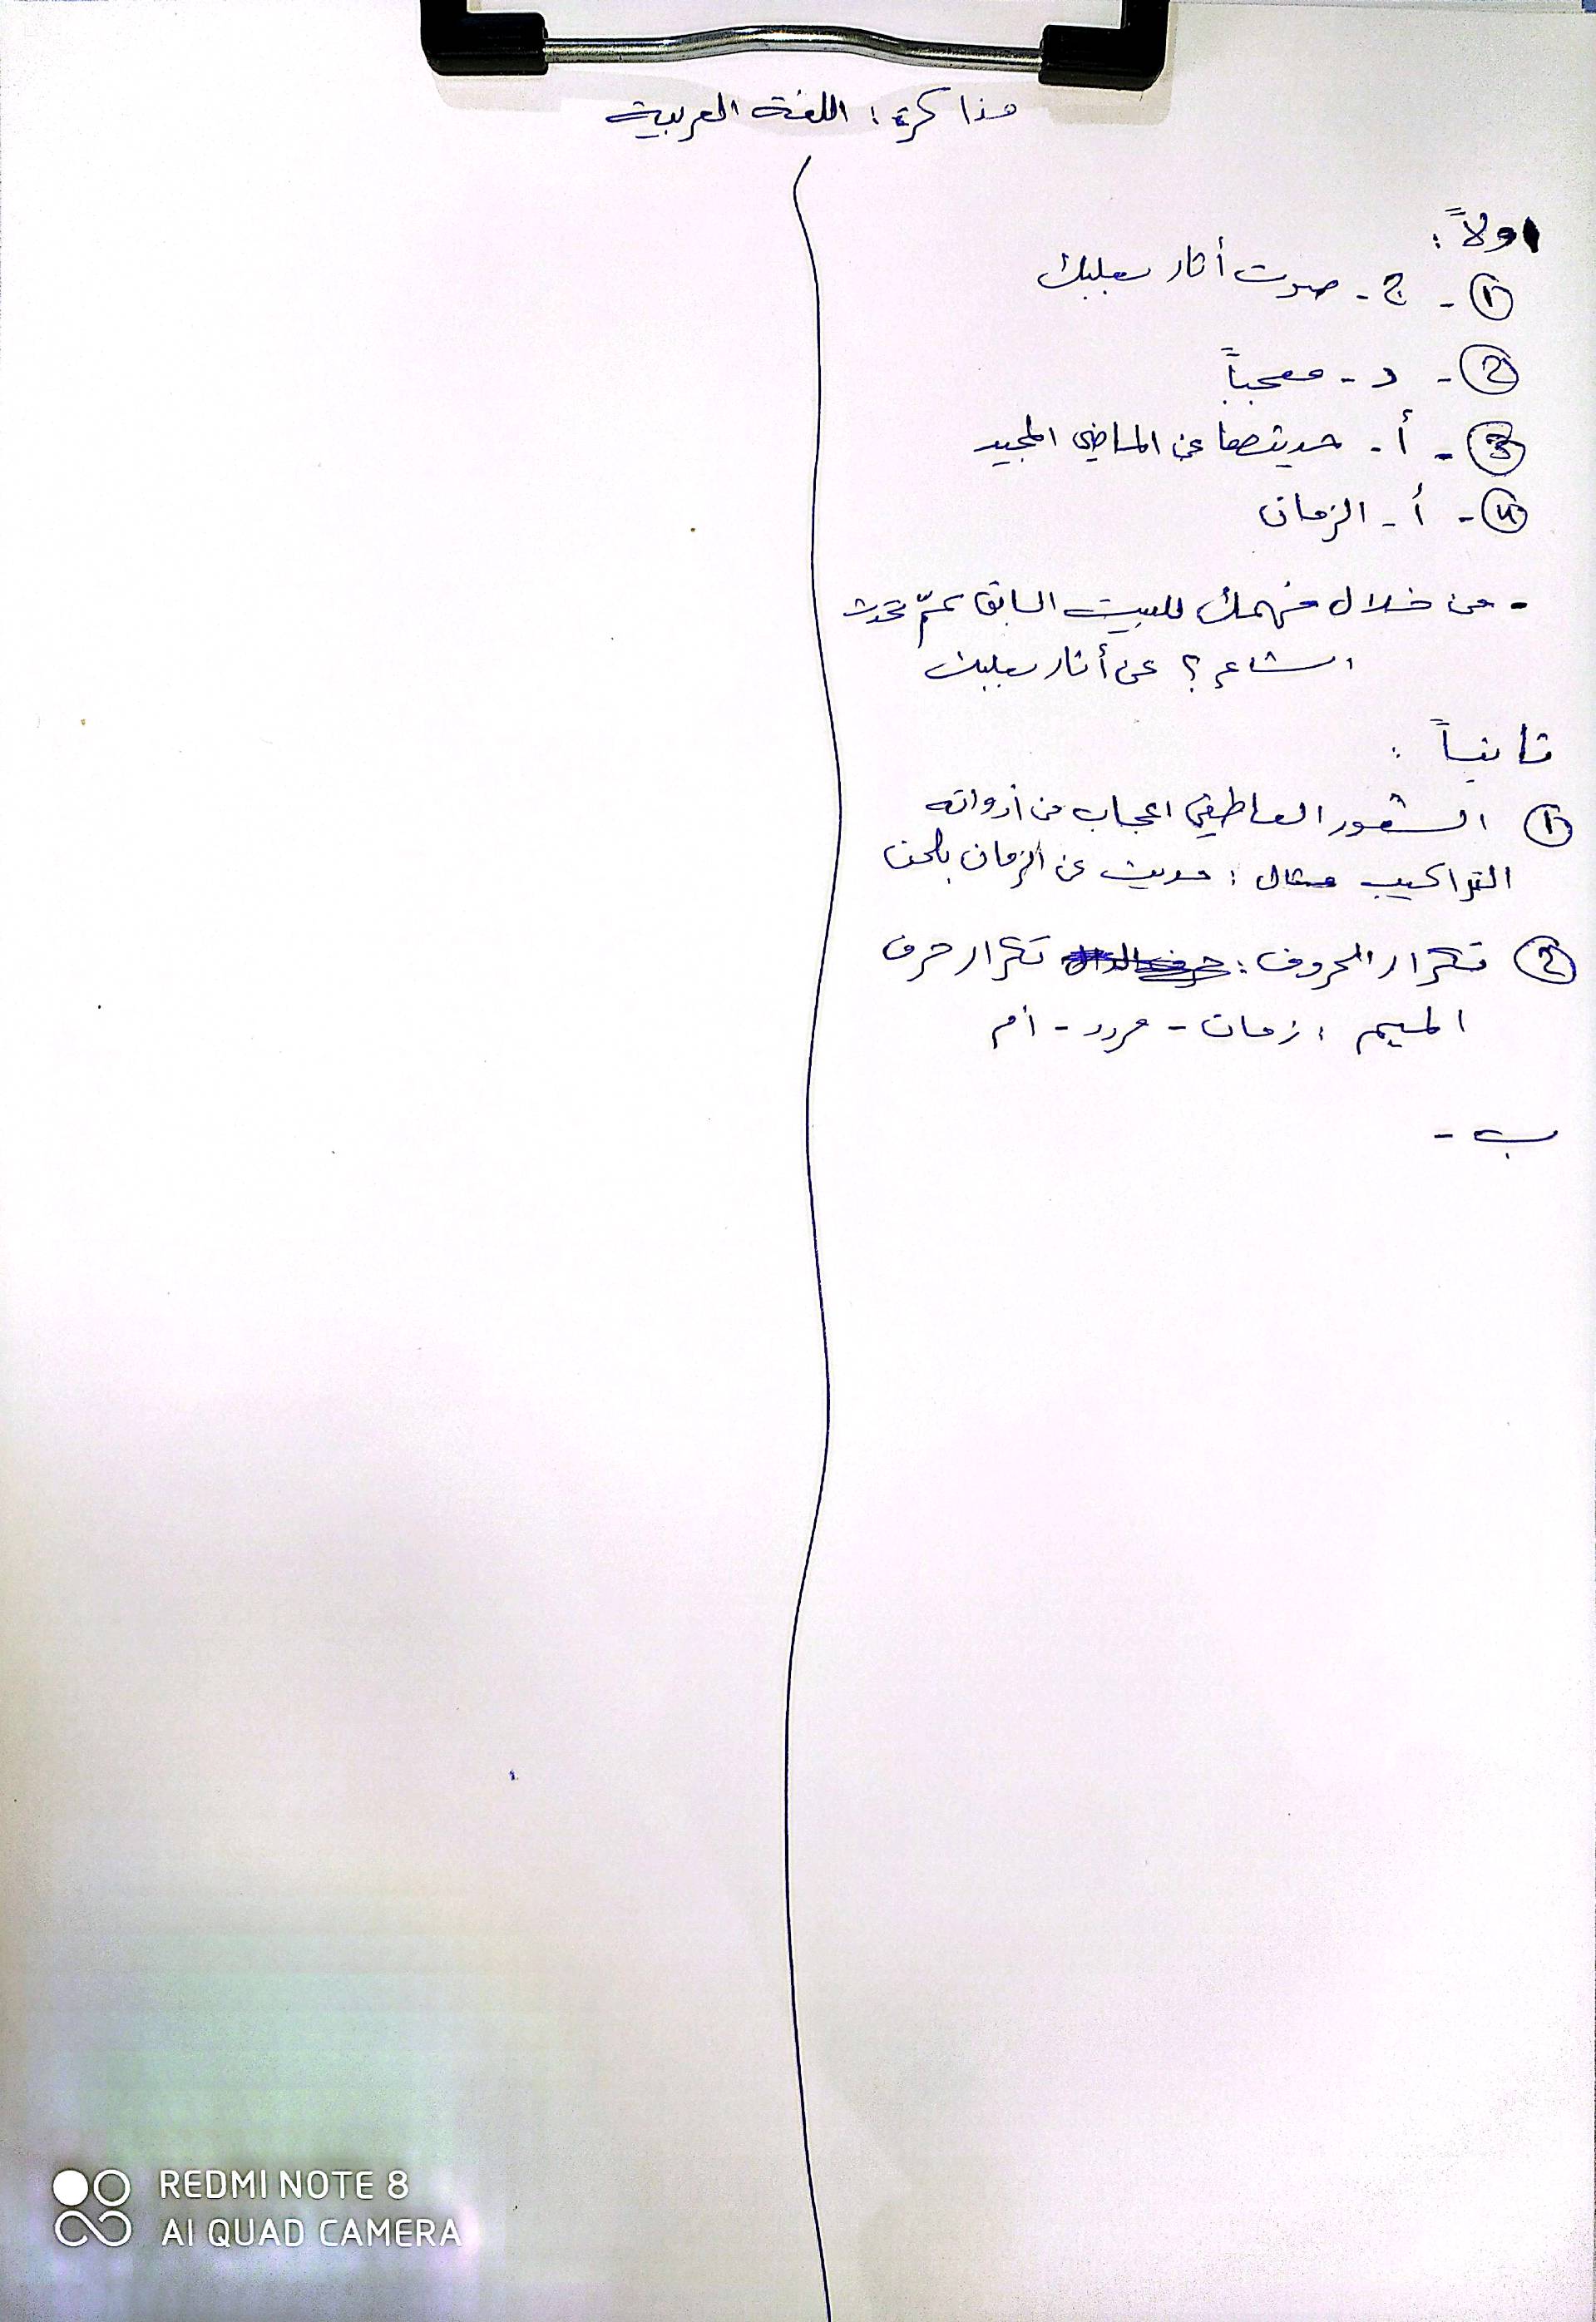 مذاكرة: اللغة العربية
اولاً:
① - ج - صوت أثار بعلبك
② - د - معجباً
③ - أ - حديثها عن الماضي المجيد
④ - أ - الزمان
- من خلال فهمك للبيت السابق عمّ تحدث
الشاعر؟ عن أثار بعلبك
ثانياً:
① الشعور العاطفي اعجاب من أدواته
التراكيب مثال: حديث عن الزمان بلحن
② تكرار الحروف: تكرار حرف
الميم: زمان - مردد - أم
ب -
REDMI NOTE 8
AI QUAD CAMERA